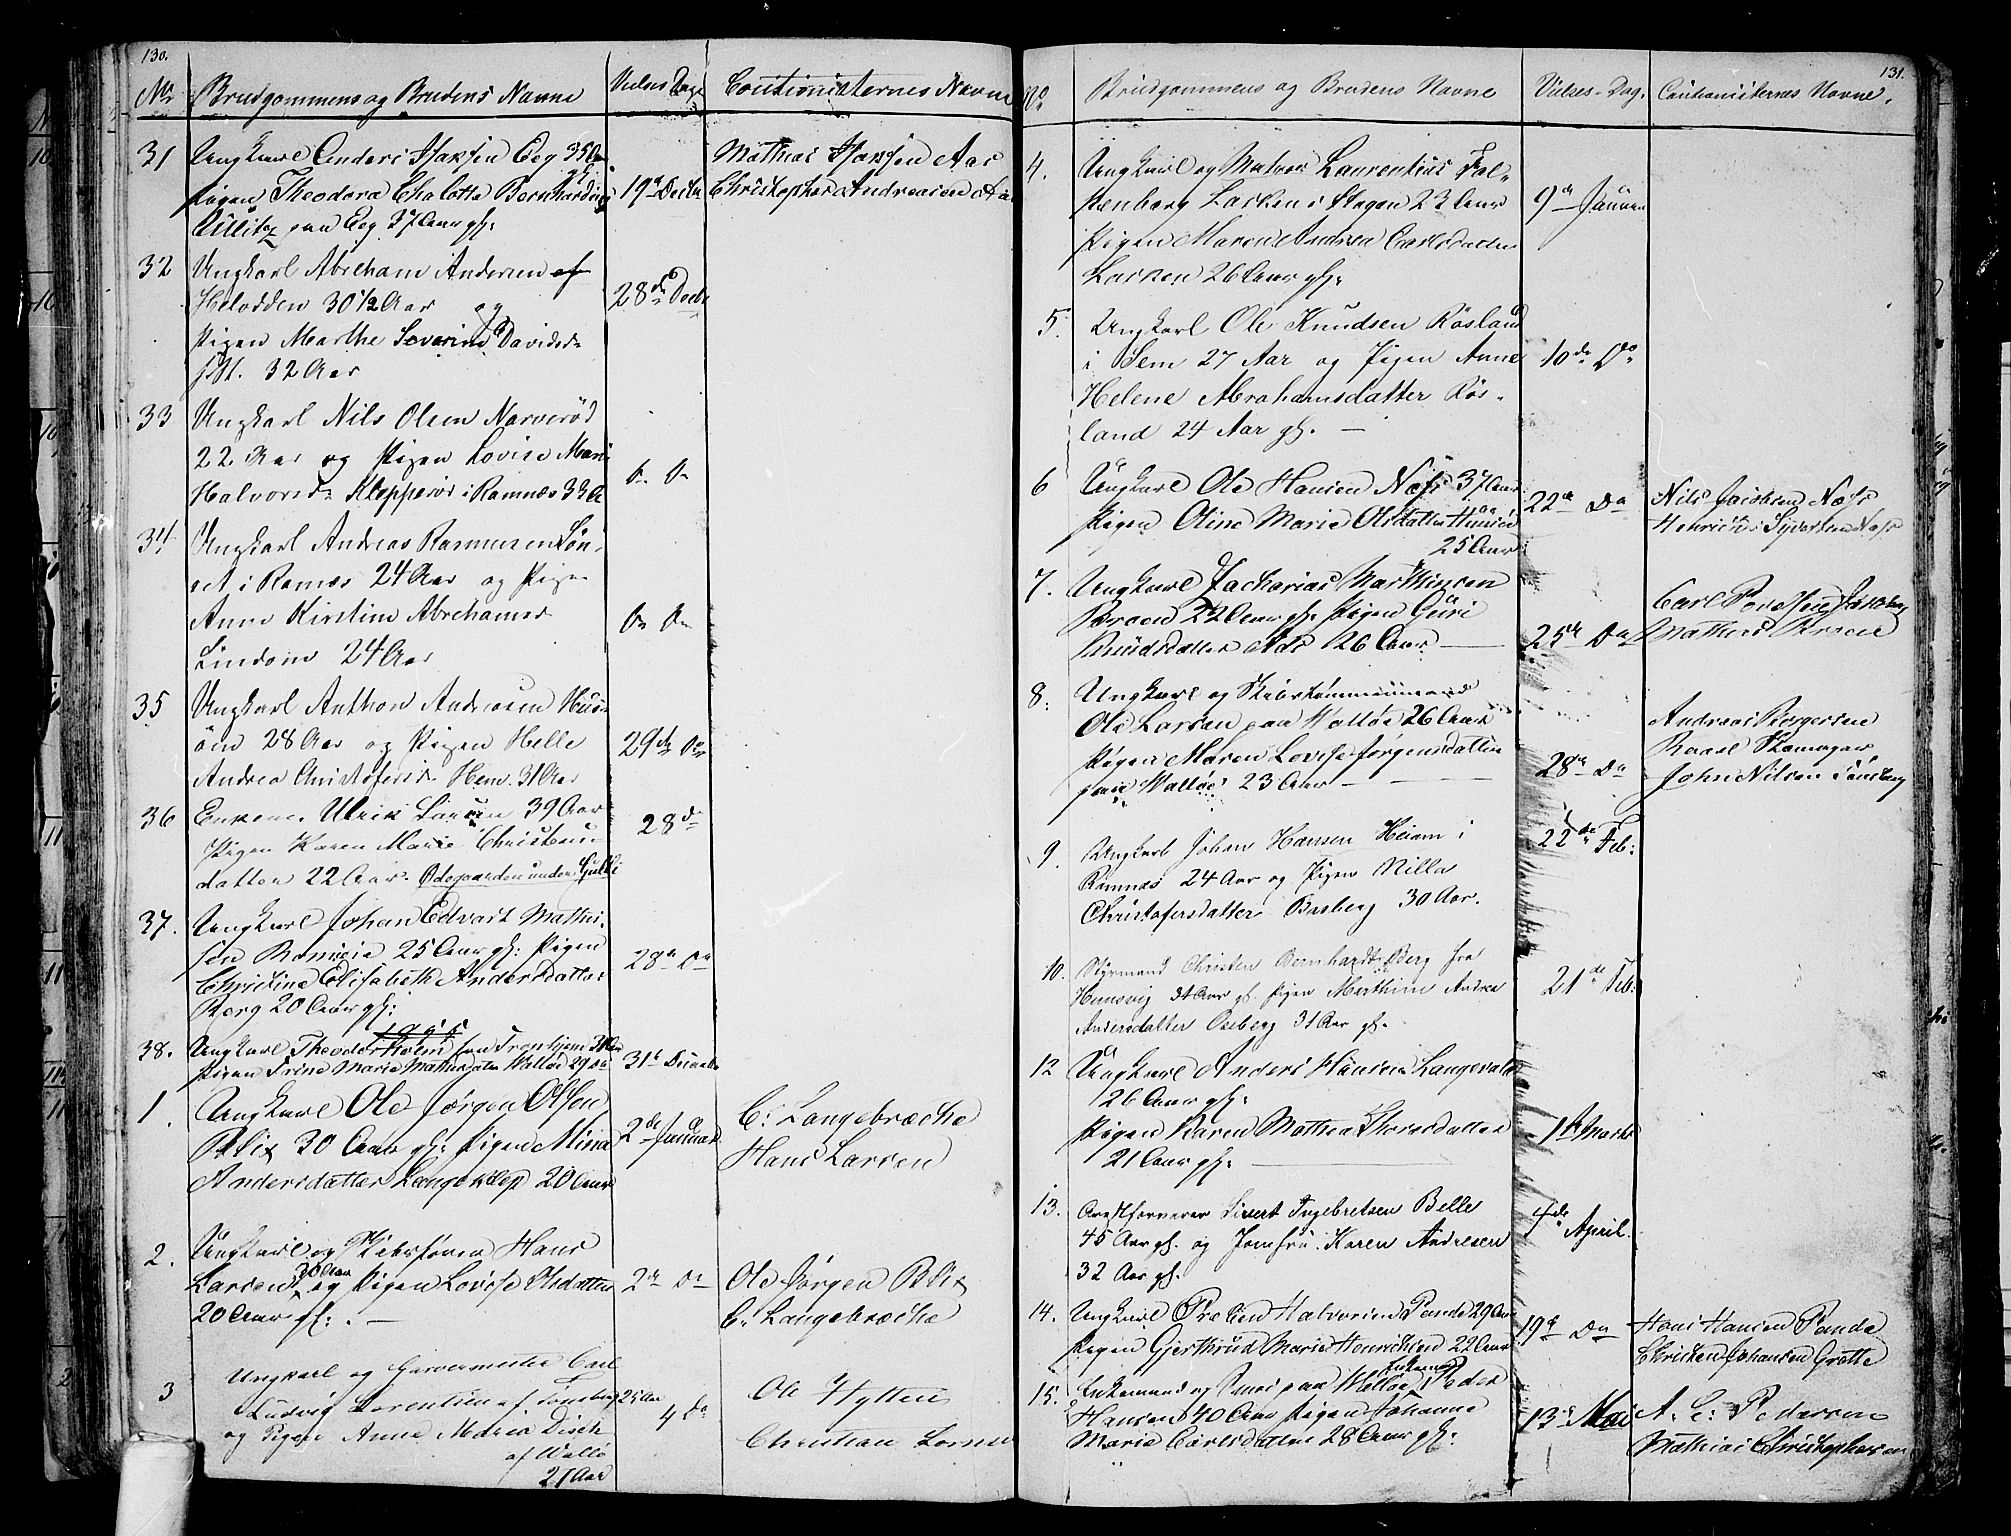 130.
No Brudgommens og Brudens Navne Vielses Dage Coutionisternes Navne
31 Ungkarl Anders Isaksen Eeg 35 Aar
Pigen Theodora Chalotta Bernhardine
Üllitz paa Eeg 37 Aar gl:
19de Decbr
Mathias Isaksen Aas
Christopher Andreasen
32 Ungkarl Abreham Andersen af
Helodden 30 1/2 Aar og
Pigen Marthe Severine Davidsd:
32 Aar
28de Decbr
33 Ungkarl Nils Olsen Narverød
22 Aar og Pigen Lovise Marie
Halvorsd: Klopperød i Ramnæs 33 A
Do Do
34 Ungkarl Andreas Rasmussen Løn-
set i Ramnæs 24 Aar og Pigen
Anne Kirstine Abrahamsd
Lindom 24 Aar
Do Do
35 Ungkarl Anthon Andresen Hus-
øen 28 Aar og Pigen Helle
Andrea Christofersd: Hem 31 Aar
29de Do
36 Enkem. Ulrik Larsen 39 Aar
Pigen Karen Marie Christens-
datter 22 Aar. Ødegaarden under Gulli
28de
37. Ungkarl Johan Edvart Mathi-
sen 25 Aar gl: Pigen
Christine Elisabeth Andersdatter
Berg 20 Aar gl:
28de Do
1855
38. Ungkarl Theodor Holm fra Tronhjem 31 Aar
Pigen Trine Marie Mathisdatter Walløe 29 Aar
31te Decembr
1. Ungkarl Ole Jørgen Olsen
Blix 30 Aar gl: Pigen Mina
Andersdatter Langeklep 20 Aar
2de Januar
C: Langebræche
Hans Larsen
2. Ungkarl og Skibsfører Hans
Larsen 30 Aar og Pigen Lovise Olsdatter
20 Aar gl: . —
2de Do
Ole Jørgen Blix
C. Langebræche
3 Ungkarl og Garvermester Carl
Ludvig Lorentsen af Tønsberg 25 Aar
og Pigen Anne Maria Disch
af Wallø
21 Aar
4 Do
Ole Hytten
Christian
131.
No Brudgommens og Brudens Navne Vielses-Dag. Cautionisternes Navne.
4. Ungkarl og Matros Laurentius Fal-
kenberg Larsen i Skogen 23 Aar
Pigen Maren Andrea Carlsdatter
Larsen 26 Aar gl:
9de Januar
5. Ungkarl Ole Knudsen Røsland
i Sem 27 Aar og Pigen Anne
Helene Abrahamsdatter Røs-
land 24 Aar gl. —
10de Do
6 Ungkarl Ole Hansen Næss 37 Aar
Pigen Oline Marie Olsdatter
25 Aar
22de Do
Nils Jacobsen Næss
Henrich Syvertsen Næss
7. Ungkarl Zacharias Marthinsen
Braaen 22 Aar gl: Pigen Guri
Knudsdatter Aas 26 Aar —
25de Do
Carl
Mathias Braaen
8. Ungkarl og Skibstømmermand
Ole Larsen paa Walløe 26 Aar
Pigen Maren Lovise Jørgensdatter
paa Walløe 23 Aar —
28de Do
Andreas Borgersen
Basel
John Nilsen Tønsberg
9. Ungkarl Johan Hansen Heiam i
Ramnæs 24 Aar og Pigen Nilla
Christofersdatter Basberg 30 Aar.
22de Feb:
10. Styrmand Christen Bernhardt Berg fra
Hunsvig 31 Aar gl. Pigen Marthine Andrea
Andersdatter Oseberg 31 Aar gl.
21de Feb:
12 Ungkarl Anders Hansen
26 Aar gl:
Pigen Karen Mathea Thorsdatter
21 Aar gl: —
1te Marts
13. Arestforvarer Sivert Ingebretsen Belle
45 Aar gl. og Jomfru Karen Andresen
32 Aar gl.
4de April.
14. Ungkarl Preben Halvorsen Panda 29 Aar
Pigen Gjerthrud Marie Henrichsen 22 Aar
19de Do
Hans Hansen Panda
Christen Johansen Grette
15. Enkemand og Smed paa Walløe Peder
Hansen 40 Aar Pigen Johanne
Marie Carlsdatter 28 Aar gl:
13de Mai
A. C: Pedersen
Mathias Christophersen